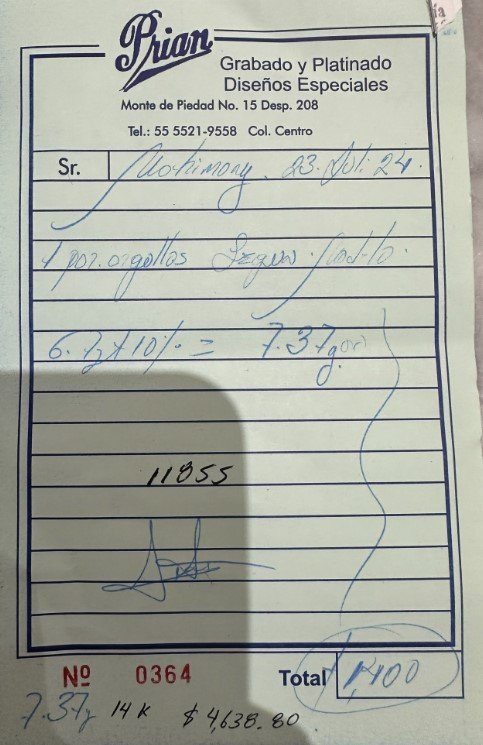 ía
Prian
Grabado y Platinado
Diseños Especiales
Monte de Piedad No. 15 Desp. 208
Tel.: 55 5521-9558 Col. Centro
Sr. Mathimony. 23. Jul. 24.
1 par. argollas Segun
6.7g + 10% = 7.37g
11855
Nº 0364
Total 1,400
7.37g 14 K $ 4,638.80